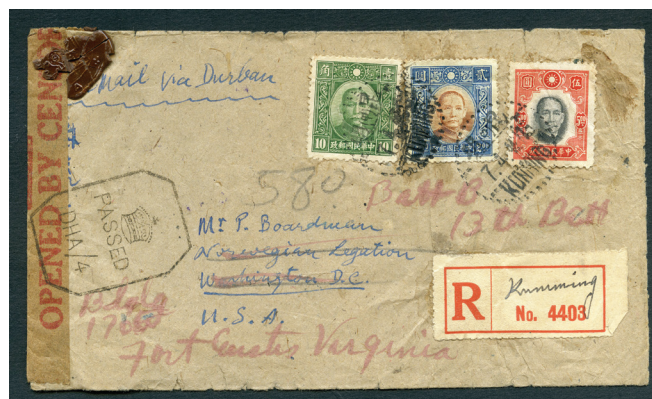 OPENED BY CENSOR
Mail via Durban
角 壹
10 10
中華民國郵政
圓 貳
圓 伍
KUNMING
KUNMING
580
PASSED
DHA/4
Batt B
13th Batt
Mr P. Boardman
Norwegian Legation
Washington D.C.
U.S.A.
Fort Eustis Verginia
R
Kunming
No. 4403